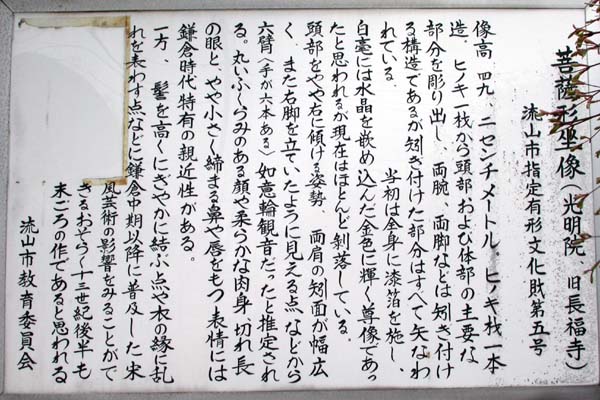 菩薩形坐像(光明院 旧長福寺)
流山市指定有形文化財第五号
像高 四九、二センチメートル、ヒノキ材一本
造、ヒノキ一材から頭部および体部の主要な
部分を彫り出し、両腕、両脚などは矧き付け
る構造であるが矧き付けた部分はすべて失なわ
れている。
当初は全身に漆箔を施し、
白毫には水晶を嵌め込んだ金色に輝く尊像であっ
たと思われるが現在はほとんど剝落している。
頭部をやや右に傾ける姿勢、両肩の矧面が幅広
く、また右脚を立ていたように見える点、などから
六臂(手が六本ある)如意輪観音だったと推定され
る。丸いふくらみのある顔や柔らかな肉身、切れ長
の眼と、やや小さく締まる鼻や唇をもつ表情には
鎌倉時代特有の親近性がある。
一方、髻を高くにぎやかに結ぶ点や衣の縁に乱
れを表わす点などに鎌倉中期以降に普及した宋
風芸術の影響をみることがで
きるおそらく十三世紀後半も
末ごろの作であると思われる
流山市教育委員会